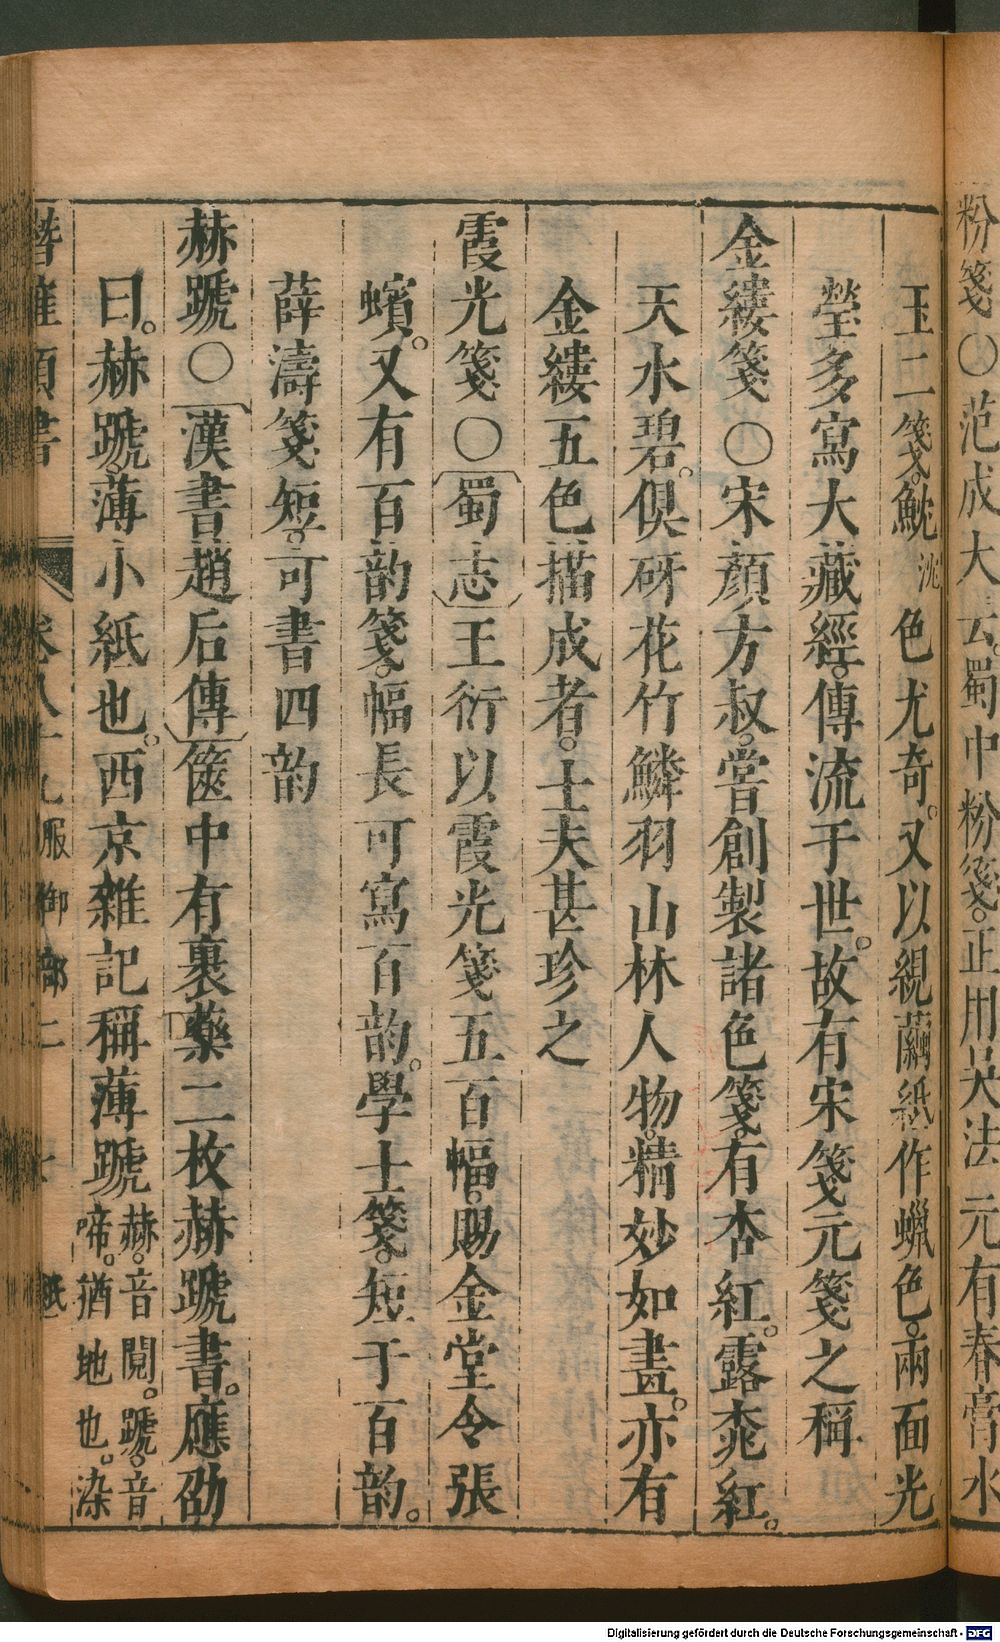 粉箋○范成大云。蜀中粉箋。正用吳法元有春膏水
玉二箋。魫沈色尤奇。又以繭紙作蠟色。兩面光
瑩多寫大藏經。傳流于世。故有宋箋元箋之稱
金縷箋○宋顏方叔。嘗創製諸色箋。有杏紅。露桃紅。
天水碧。俱砑花竹鱗羽山林人物。精妙如畫。亦有
金縷五色描成者。士夫甚珍之
霞光箋○蜀志王衍以霞光箋五百幅。賜金堂令張
蠙。又有百韵箋。幅長可寫百韵。學士箋。短于百韵。
薛濤箋短。可書四韵
赫蹏○漢書趙后傳篋中有裹藥二枚赫蹏書。應劭
曰。赫蹏。薄小紙也。西京雜記稱薄蹏赫。音鬩。蹏。音
啼。猶地也。染
潛確類書 卷八十九 服御部二 紙
Digitalisierung gefördert durch die Deutsche Forschungsgemeinschaft - DFG